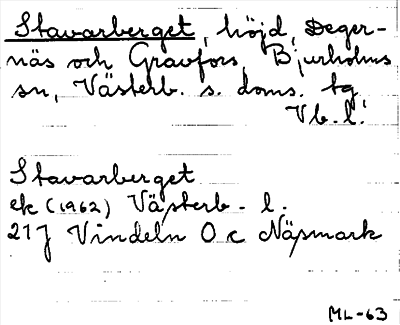 Stavarberget, höjd, Deger-
näs och Gravfors, Bjurholms
sn, Västerb. s. doms. tg
Vb. l.
Stavarberget
ek (1962) Västerb. l.
21J Vindeln 0 c Näsmark
ML-63